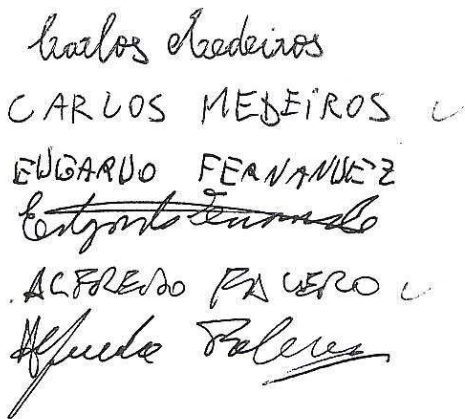 Carlos Medeiros
CARLOS MEDEIROS
EDGARDO FERNANDEZ
Edgardo Fernandez
ALFREDO FALERO
Alfredo Falero